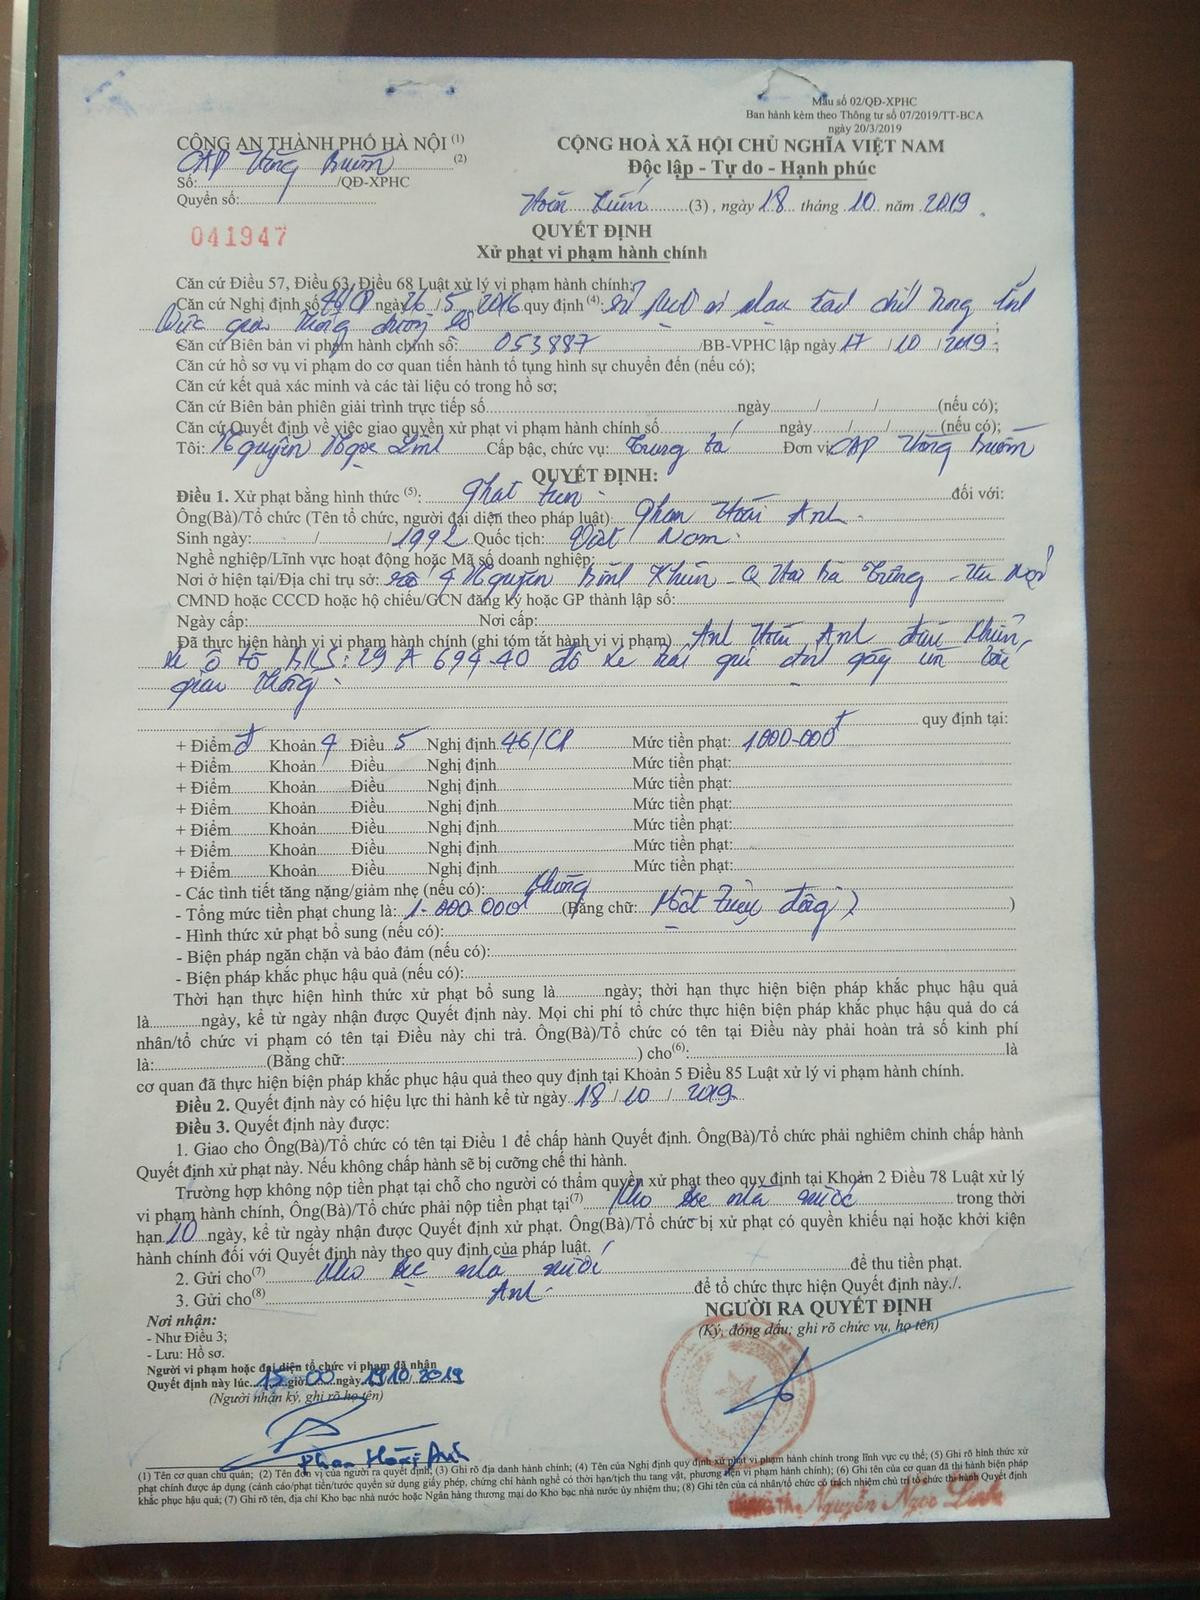 Mẫu số 02/QĐ-XPHC
Ban hành kèm theo Thông tư số 07/2019/TT-BCA
ngày 20/3/2019
CÔNG AN THÀNH PHỐ HÀ NỘI (1)
CỘNG HOÀ XÃ HỘI CHỦ NGHĨA VIỆT NAM
CAP Hàng Buồm (2)
Độc lập - Tự do - Hạnh phúc
Số: /QĐ-XPHC
Quyển số:
Hoàn Kiếm (3), ngày 18 tháng 10 năm 2019.
041947
QUYẾT ĐỊNH
Xử phạt vi phạm hành chính
Căn cứ Điều 57, Điều 63, Điều 68 Luật xử lý vi phạm hành chính;
Căn cứ Nghị định số 46/CP ngày 26/5/2016 quy định (4): xử phạt vi phạm hành chính trong lĩnh
vực giao thông đường bộ ;
Căn cứ Biên bản vi phạm hành chính số: 053887 /BB-VPHC lập ngày 17/10/2019;
Căn cứ hồ sơ vụ vi phạm do cơ quan tiến hành tố tụng hình sự chuyển đến (nếu có);
Căn cứ kết quả xác minh và các tài liệu có trong hồ sơ;
Căn cứ Biên bản phiên giải trình trực tiếp số ngày / / (nếu có);
Căn cứ Quyết định về việc giao quyền xử phạt vi phạm hành chính số ngày / / (nếu có);
Tôi: Nguyễn Ngọc Linh Cấp bậc, chức vụ: Trung tá Đơn vị: CAP Hàng Buồm
QUYẾT ĐỊNH:
Điều 1. Xử phạt bằng hình thức (5): Phạt tiền đối với:
Ông(Bà)/Tổ chức (Tên tổ chức, người đại diện theo pháp luật): Phan Hoài Anh
Sinh ngày: / /1992 Quốc tịch: Việt Nam.
Nghề nghiệp/Lĩnh vực hoạt động hoặc Mã số doanh nghiệp:
Nơi ở hiện tại/Địa chỉ trụ sở: số 4 Nguyễn Bỉnh Khiêm - Q Hai Bà Trưng - Hà Nội
CMND hoặc CCCD hoặc hộ chiếu/GCN đăng ký hoặc GP thành lập số:
Ngày cấp: Nơi cấp:
Đã thực hiện hành vi vi phạm hành chính (ghi tóm tắt hành vi vi phạm) Anh Hoài Anh điều khiển
xe ô tô BKS: 29A 694-40 đỗ xe trái quy định gây ùn tắc
giao thông.
quy định tại:
+ Điểm đ Khoản 4 Điều 5 Nghị định 46/CP Mức tiền phạt: 1000-000đ
+ Điểm Khoản Điều Nghị định Mức tiền phạt:
+ Điểm Khoản Điều Nghị định Mức tiền phạt:
+ Điểm Khoản Điều Nghị định Mức tiền phạt:
+ Điểm Khoản Điều Nghị định Mức tiền phạt:
+ Điểm Khoản Điều Nghị định Mức tiền phạt:
+ Điểm Khoản Điều Nghị định Mức tiền phạt:
- Các tình tiết tăng nặng/giảm nhẹ (nếu có): Không
- Tổng mức tiền phạt chung là: 1-000.000đ (Bằng chữ: Một triệu đồng)
- Hình thức xử phạt bổ sung (nếu có):
- Biện pháp ngăn chặn và bảo đảm (nếu có):
- Biện pháp khắc phục hậu quả (nếu có):
Thời hạn thực hiện hình thức xử phạt bổ sung là ngày; thời hạn thực hiện biện pháp khắc phục hậu quả
là ngày, kể từ ngày nhận được Quyết định này. Mọi chi phí tổ chức thực hiện biện pháp khắc phục hậu quả do cá
nhân/tổ chức vi phạm có tên tại Điều này chi trả. Ông(Bà)/Tổ chức có tên tại Điều này phải hoàn trả số kinh phí
là: (Bằng chữ: ) cho(6): là
cơ quan đã thực hiện biện pháp khắc phục hậu quả theo quy định tại Khoản 5 Điều 85 Luật xử lý vi phạm hành chính.
Điều 2. Quyết định này có hiệu lực thi hành kể từ ngày 18/10/2019
Điều 3. Quyết định này được:
1. Giao cho Ông(Bà)/Tổ chức có tên tại Điều 1 để chấp hành Quyết định. Ông(Bà)/Tổ chức phải nghiêm chỉnh chấp hành
Quyết định xử phạt này. Nếu không chấp hành sẽ bị cưỡng chế thi hành.
Trường hợp không nộp tiền phạt tại chỗ cho người có thẩm quyền xử phạt theo quy định tại Khoản 2 Điều 78 Luật xử lý
vi phạm hành chính, Ông(Bà)/Tổ chức phải nộp tiền phạt tại(7) kho bạc nhà nước trong thời
hạn 10 ngày, kể từ ngày nhận được Quyết định xử phạt. Ông(Bà)/Tổ chức bị xử phạt có quyền khiếu nại hoặc khởi kiện
hành chính đối với Quyết định này theo quy định của pháp luật.
2. Gửi cho(7) kho bạc nhà nước để thu tiền phạt.
3. Gửi cho(8) Anh để tổ chức thực hiện Quyết định này./.
Nơi nhận:
NGƯỜI RA QUYẾT ĐỊNH
(Ký, đóng dấu; ghi rõ chức vụ, họ tên)
- Như Điều 3;
- Lưu: Hồ sơ.
Người vi phạm hoặc đại diện tổ chức vi phạm đã nhận
Quyết định này lúc 15 giờ 00 ngày 19/10/2019
(Người nhận ký, ghi rõ họ tên)
Phan Hoài Anh
(1) Tên cơ quan chủ quản; (2) Tên đơn vị của người ra quyết định; (3) Ghi rõ địa danh hành chính; (4) Tên của Nghị định quy định xử phạt vi phạm hành chính trong lĩnh vực cụ thể; (5) Ghi rõ hình thức xử
phạt chính được áp dụng (cảnh cáo/phạt tiền/tước quyền sử dụng giấy phép, chứng chỉ hành nghề có thời hạn/tịch thu tang vật, phương tiện vi phạm hành chính); (6) Ghi tên của cơ quan đã thi hành biện pháp
khắc phục hậu quả; (7) Ghi rõ tên, địa chỉ Kho bạc nhà nước hoặc Ngân hàng thương mại do Kho bạc nhà nước ủy nhiệm thu; (8) Ghi tên của cá nhân/tổ chức có trách nhiệm chủ trì tổ chức thi hành Quyết định
TRUNG TÁ. Nguyễn Ngọc Linh